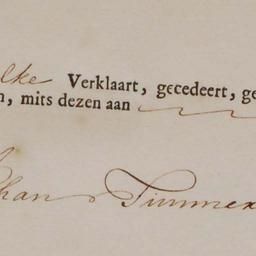 lke Verklaart, gecedeert, ge
n, mits dezen aan
han Timmer